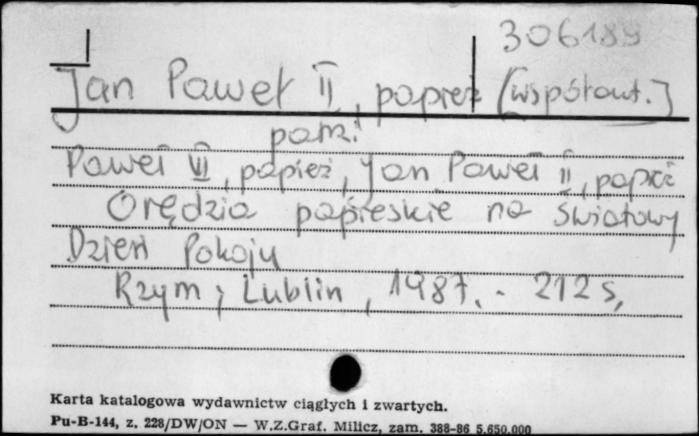 306189
Jan Paweł II, papież [współaut.]
patrz:
Paweł VI, papież, Jan Paweł II, papież
Orędzia papieskie na Światowy
Dzień Pokoju
Rzym ; Lublin, 1987. - 212 s.
Karta katalogowa wydawnictw ciągłych i zwartych.
Pu-B-144, z. 228/DW/ON — W.Z.Graf. Milicz, zam. 388-86 5.650.000